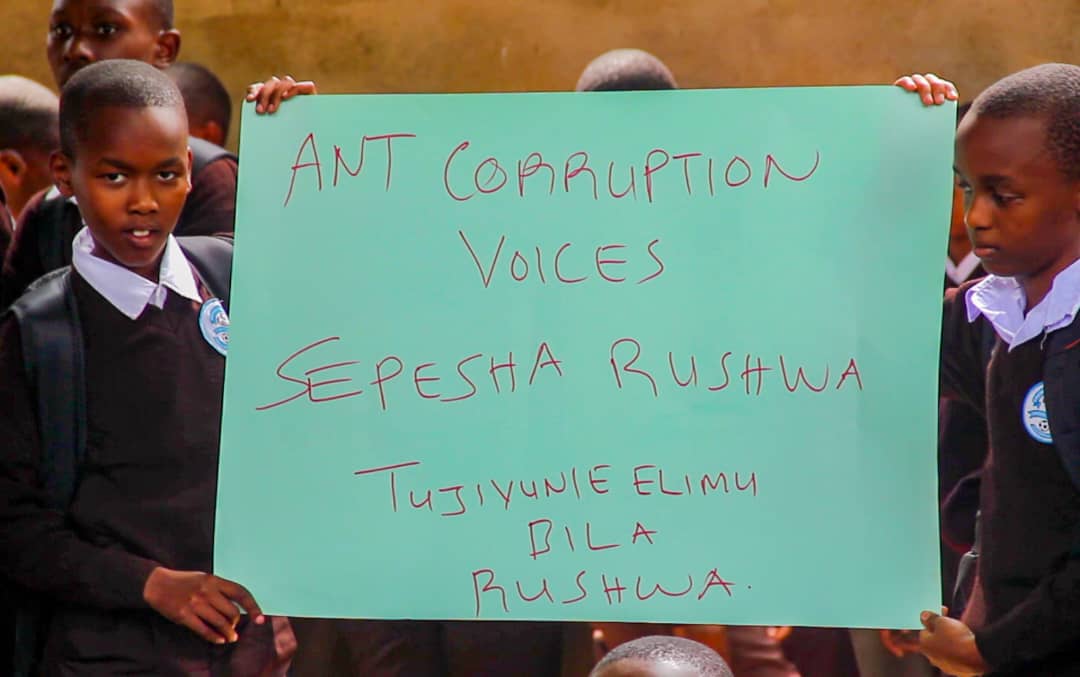 ANT CORRUPTION
VOICES
SEPESHA RUSHWA
TUJIVUNIE ELIMU
BILA
RUSHWA.